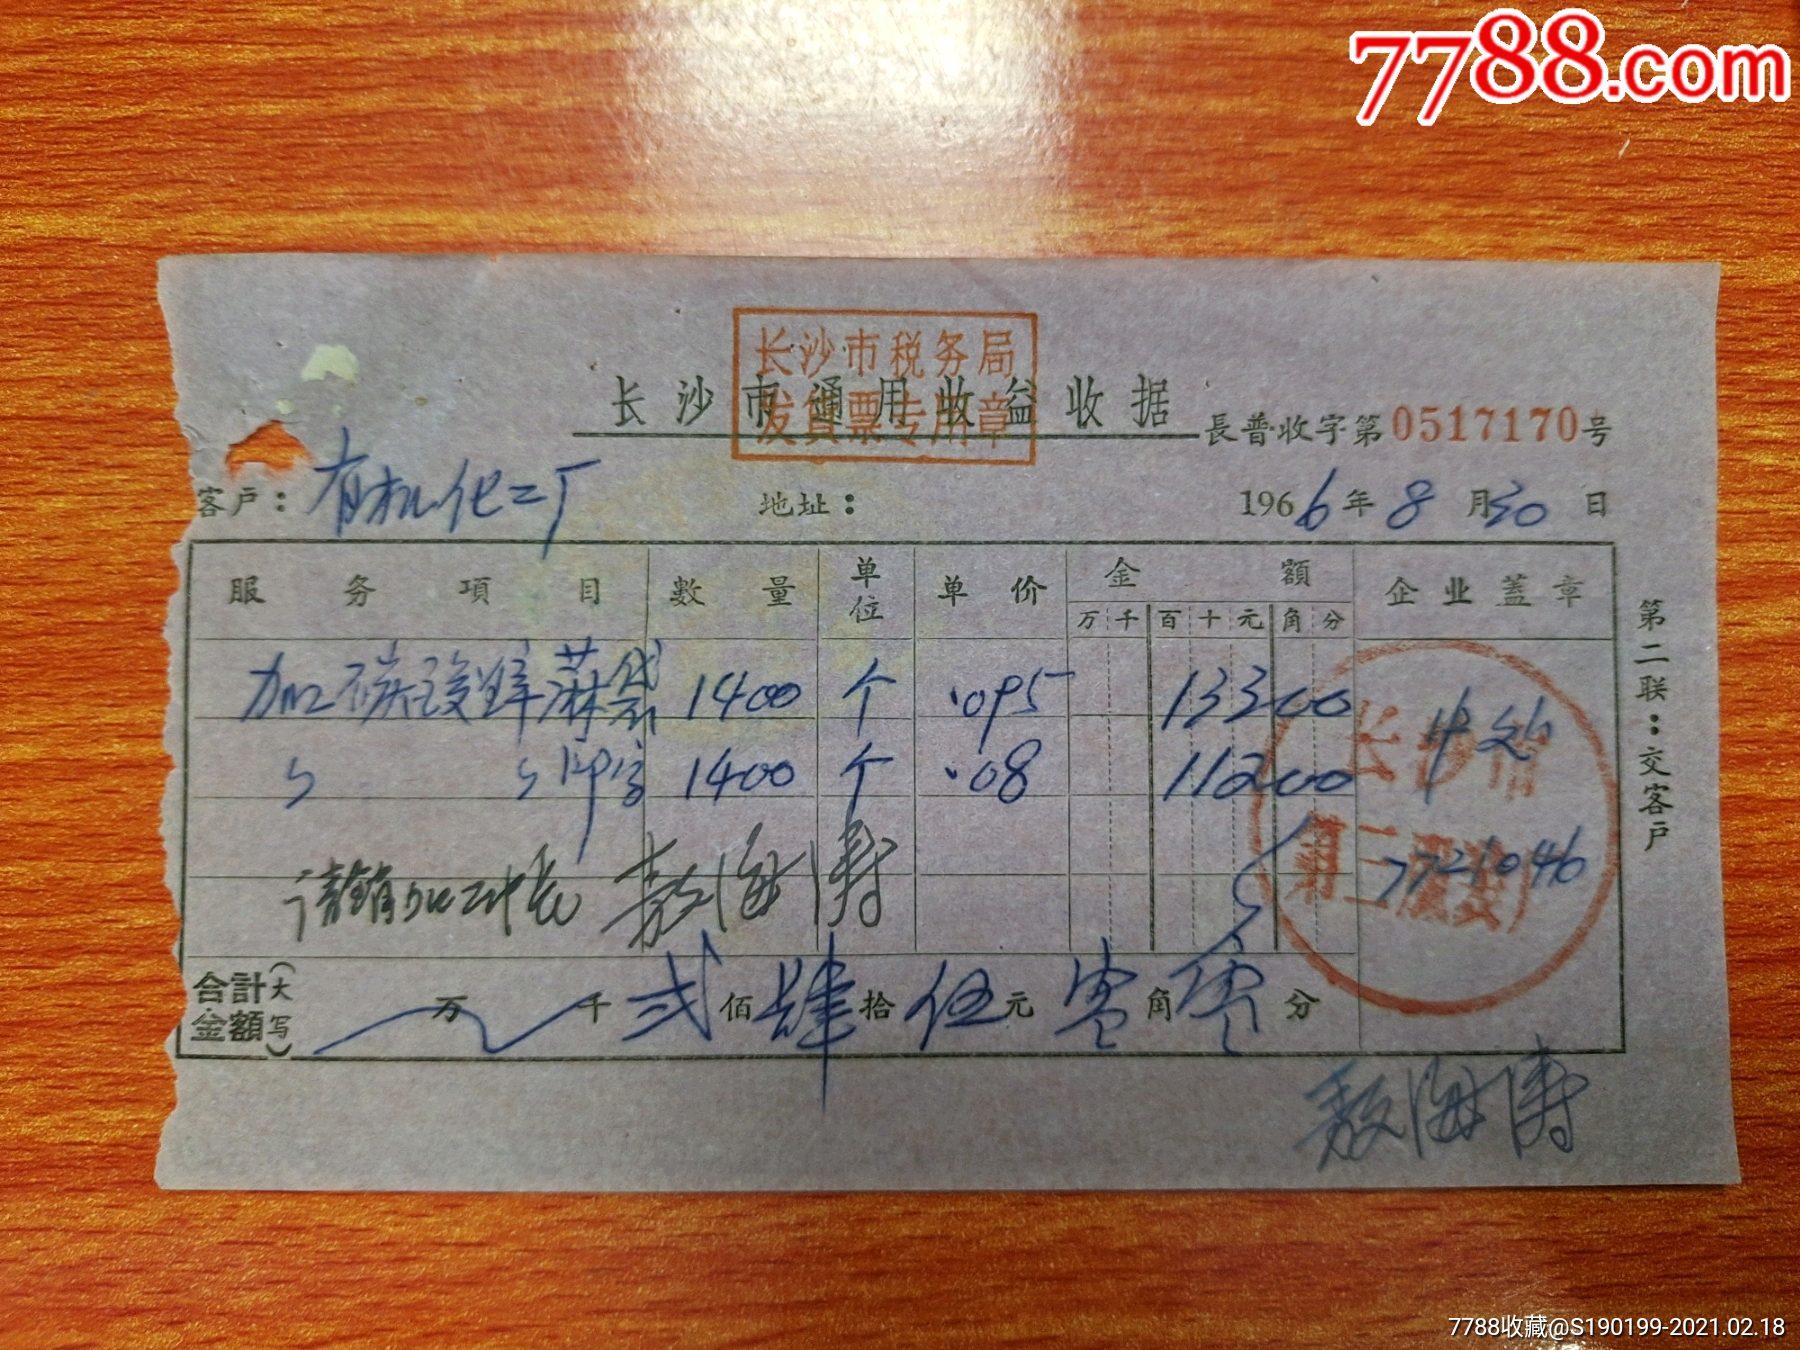 7788.com
长沙市税务局
发货票专用章
长沙市通用收益收据
長普收字第0517170号
客户：有机化工厂 地址： 1966年8月30日
服务項目 數量 单位 单价 金額 企业盖章
万千百十元角分
加碳酸锌蔴袋 1400 个 .095 13300
〃 〃印字 1400 个 .08 11200
长沙市
第三服装厂
7721046
请销加工费 敖海涛
合計金額(大写) 万 千 弍佰肆拾伍元零角零分
第二联：交客户
敖海涛
7788收藏@S190199-2021.02.18